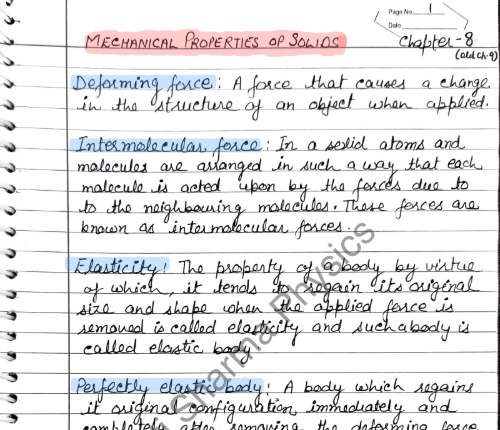 Page No. 1
Date
MECHANICAL PROPERTIES OF SOLIDS
Chapter-8
(old ch-9)
Deforming force: A force that causes a change
in the structure of an object when applied.
Intermolecular force: In a solid atoms and
molecules are arranged in such a way that each
molecule is acted upon by the forces due to
to the neighbouring molecules. These forces are
known as intermolecular forces.
Elasticity: The property of a body by virtue
of which, it tends to regain its original
size and shape when the applied force is
removed is called elasticity and such a body is
called elastic body
Perfectly elastic body: A body which regains
it original configuration immediately and
completely after removing the deforming force
Sharma Physics